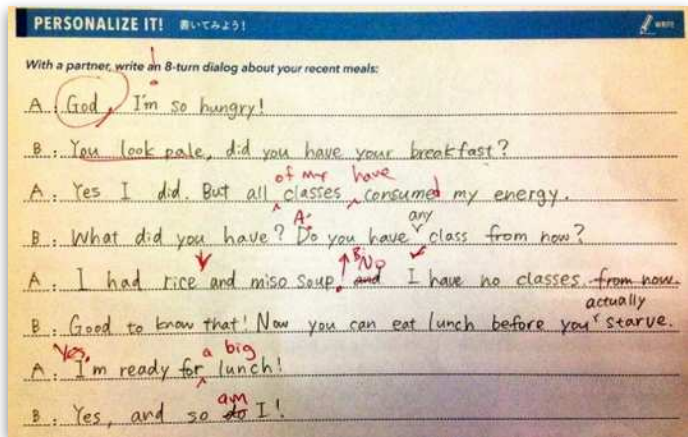 PERSONALIZE IT! 書いてみよう! WRITE
With a partner, write an 8-turn dialog about your recent meals:
!
A : God, I'm so hungry!
B : You look pale, did you have your breakfast?
of my have
A : Yes I did. But all classes consumed my energy.
A: any
B : What did you have? Do you have class from now?
B No
A : I had rice and miso soup. and I have no classes from now.
actually
B : Good to know that! Now you can eat lunch before you starve.
Yes. a big
A : I'm ready for lunch!
am
B : Yes, and so do I!